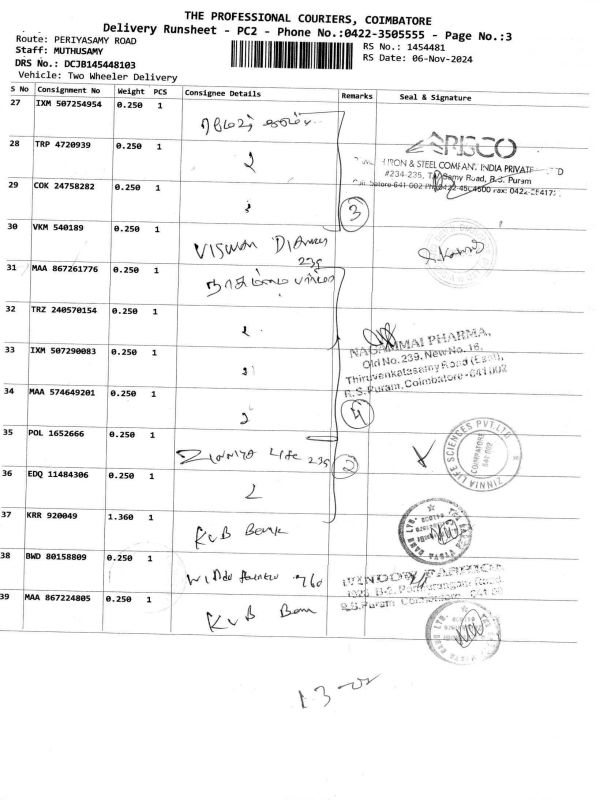 THE PROFESSIONAL COURIERS, COIMBATORE
Delivery Runsheet - PC2 - Phone No.:0422-3505555 - Page No.:3
Route: PERIYASAMY ROAD
RS No.: 1454481
Staff: MUTHUSAMY
RS Date: 06-Nov-2024
DRS No.: DCJB145448103
Vehicle: Two Wheeler Delivery
S No Consignment No Weight PCS Consignee Details Remarks Seal & Signature
27 IXM 507254954 0.250 1
28 TRP 4720939 0.250 1
ARISCO
IRON & STEEL COMPANY INDIA PRIVATE
#234-235, Samy Road, R.S. Puram
29 COK 24758282 0.250 1
3
30 VKM 540189 0.250 1
239
31 MAA 867261776 0.250 1
32 TRZ 240570154 0.250 1
2
NAGAMMAI PHARMA,
Old No. 239, New No. 16,
33 IXM 507290083 0.250 1
Thiruvenkatasamy Road (East),
R.S. Puram, Coimbatore - 641 002
34 MAA 574649201 0.250 1
2 4
35 POL 1652666 0.250 1
Zinnia Life 239 2
ZINNIA LIFE SCIENCES PVT. LTD
COIMBATORE
641 002
36 EDQ 11484306 0.250 1
2
37 KRR 920049 1.360 1
KVB Bank
38 BWD 80158809 0.250 1
WINDOW FASHION
R.S.Puram Coimbatore
39 MAA 867224805 0.250 1
KVB Bank